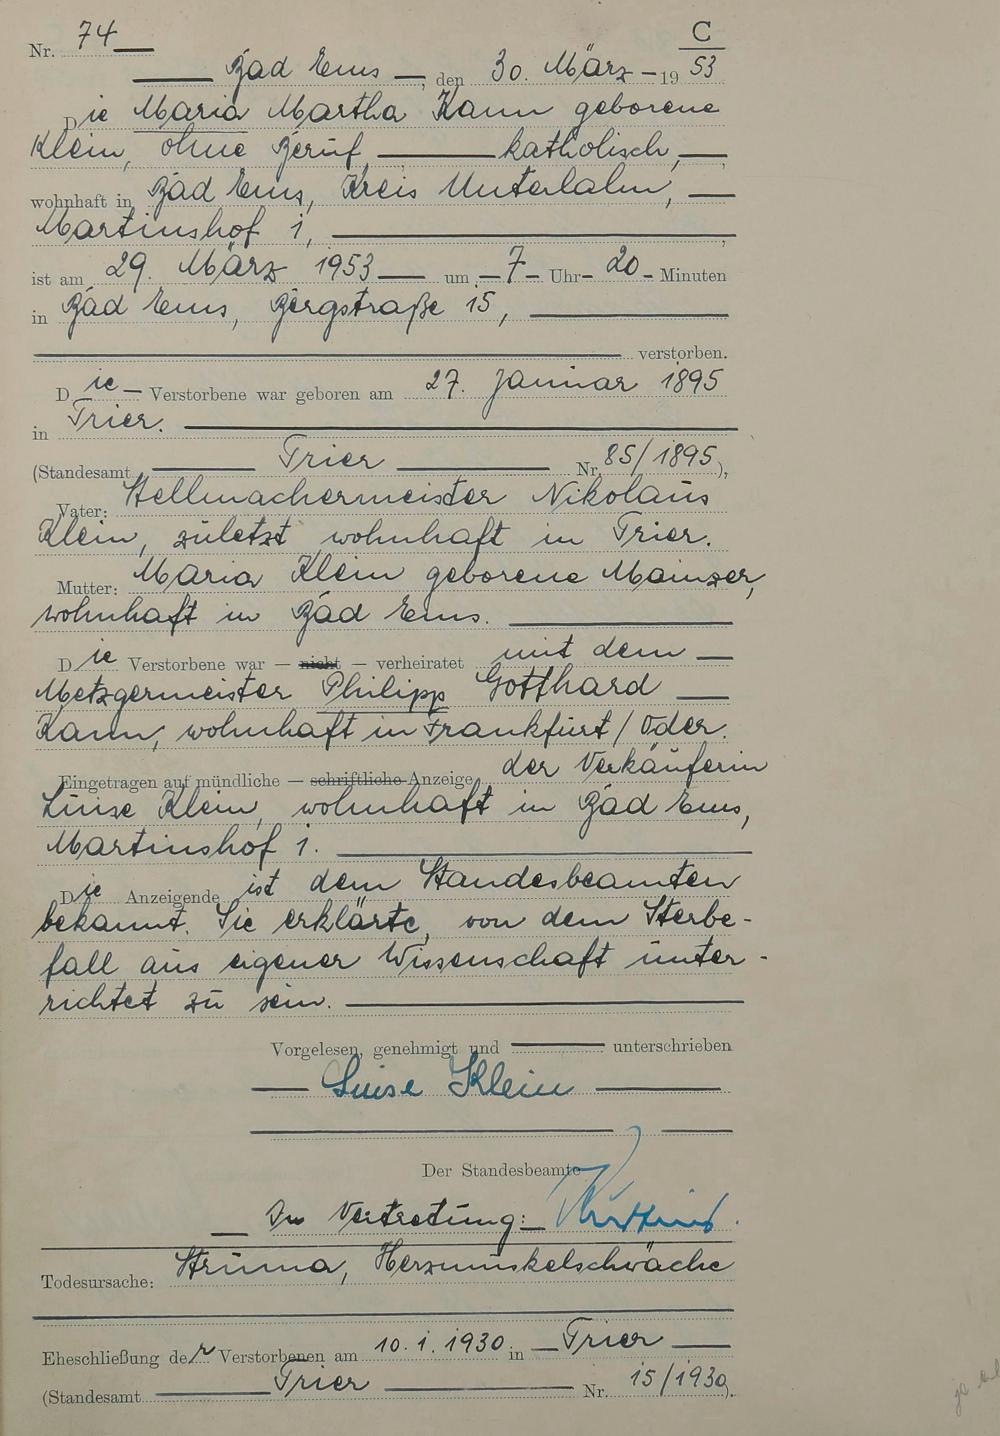 C
Nr. 74
Bad Ems, den 30. März 1953
Die Maria Martha Kann geborene
Klein, ohne Beruf, katholisch,
wohnhaft in Bad Ems, Kreis Unterlahn,
Martinshof 1,
ist am 29. März 1953 um 7 Uhr 20 Minuten
in Bad Ems, Bergstraße 15,
verstorben.
Die Verstorbene war geboren am 27. Januar 1895
in Trier.
(Standesamt Trier Nr. 85/1895),
Vater: Stellmachermeister Nikolaus
Klein, zuletzt wohnhaft in Trier.
Mutter: Maria Klein geborene Mainzer,
wohnhaft in Bad Ems.
Die Verstorbene war — nicht — verheiratet mit dem
Metzgermeister Philipp Gotthard
Kann, wohnhaft in Frankfurt/Oder.
Eingetragen auf mündliche — schriftliche Anzeige der Verkäuferin
Luise Klein, wohnhaft in Bad Ems,
Martinshof 1.
Die Anzeigende ist dem Standesbeamten
bekannt. Sie erklärte, von dem Sterbe-
fall aus eigener Wissenschaft unter-
richtet zu sein.
Vorgelesen, genehmigt und unterschrieben
Luise Klein
Der Standesbeamte
In Vertretung:
Todesursache: Struma, Herzmuskelschwäche
Eheschließung der Verstorbenen am 10.1.1930 in Trier
(Standesamt Trier Nr. 15/1930).